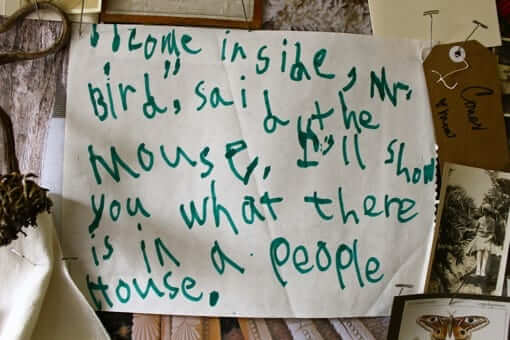 "Come inside, Mr.
Bird," said the
Mouse, I'll show
you what there
is in a people
House.